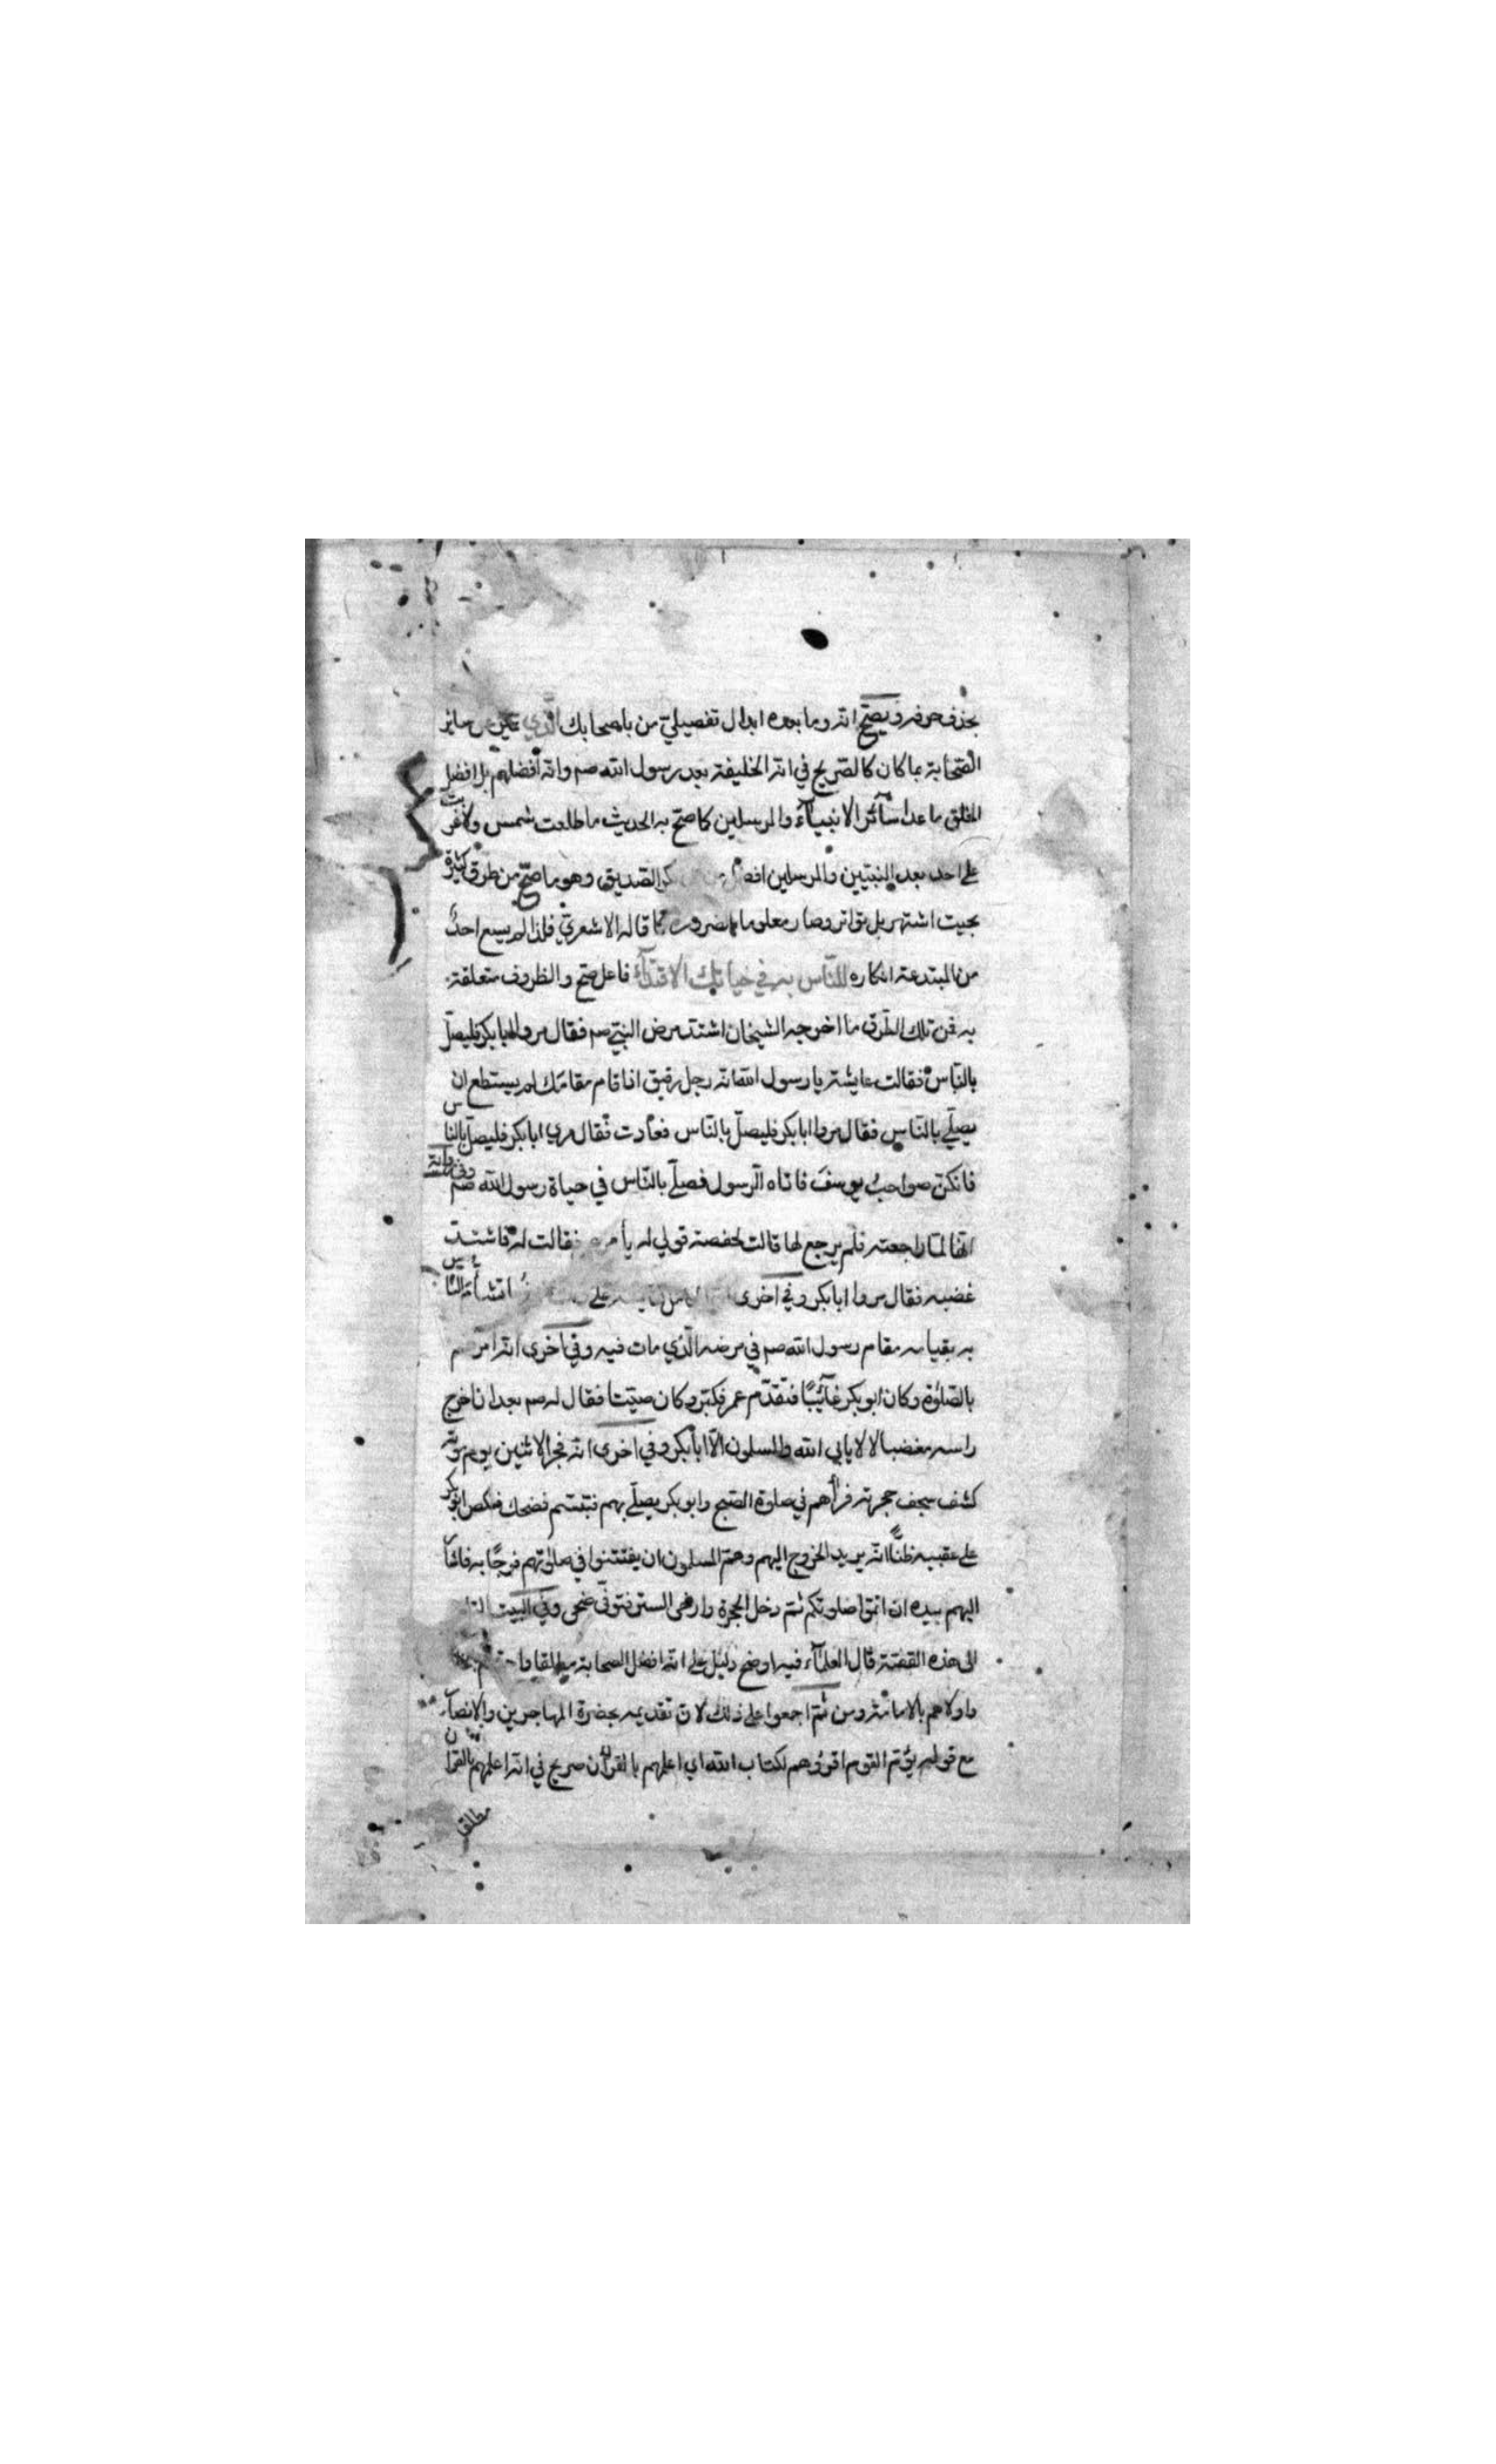 بحذف حرفه ويصح انه وما بعده ابدال تفصيلي من باصحابك الذي تميز عن سائر
الصحابة بما كان كالصريح في انه الخليفة بعد رسول الله صم وانه افضلهم بل افضل
الخلق ما عدا سآئر الانبيآء والمرسلين كما صح به الحديث ما طلعت شمس ولا غربت
على احد بعد النبيين والمرسلين افضل من بكر الصديق وهو ما صح من طرق كثيرة
بحيث اشتهر بل تواتر وصار معلوما بالضرورة كما قاله الاشعري فلذا لم يسع احدٌ
من المبتدعة انكاره للنّاس به في حياتك الاقتدآء فاعل صح والظروف متعلقة
به فمن تلك الطرق ما اخرجه الشيخان اشتد مرض النبي صم فقال مروا ابا بكر فليصلّ
بالنّاس فقالت عايشة يا رسول الله انه رجل رقيق اذا قام مقامك لم يستطع ان
يصلّي بالنّاس فقال مروا ابا بكر فليصلّ بالنّاس فعادت فقال مري ابا بكر فليصلّ بالناس
فانكن صواحبُ يوسفَ فاتاه الرسول فصلّى بالنّاس في حياة رسول الله صم وفي رواية
انها لمّا راجعته فلم يرجع لها قالت لحفصة قولي له يأمر فقالت له فاشتدّ
غضبه فقال مروا ابا بكر وفي اخرى على
به بقيامه مقام رسول الله صم في مرضه الّذي مات فيه وفي اخرى انه امرهم
بالصّلوة وكان ابو بكر غآئبًا فتقدّم عمر فكبّر وكان صيّتا فقال له صم بعد ان اخرج
راسه مغضبا لا لا يابى الله والمسلمون الّا ابا بكر وفي اخرى انه فجر الاثنين يوم موته
كشف سجف حجرته فرأهم في صلوة الصّبح وابو بكر يصلّي بهم فتبسّم فضحك فنكص ابو بكر
على عقبيه ظنًّا انه يريد الخروج اليهم وهمّ المسلمون ان يفتتنوا في صلوتهم فرحًا به فاشآر
اليهم بيده ان اتمّوا صلوتكم ثمّ دخل الحجرة وارخى الستر فتوفّي ضحى وفي البيت
الى هذه القصّة قال العلمآء فيه اوضح دليل على انه افضل الصحابة مطلقا
واولاهم بالامامة ومن ثمّ اجمعوا على ذلك لانّ تقديمه بحضرة المهاجرين والانصآر
مع قوله يؤمّ القوم اقرؤهم لكتاب الله اي اعلمهم بالقرآن صريح في انه اعلمهم بالقران
مطلقا